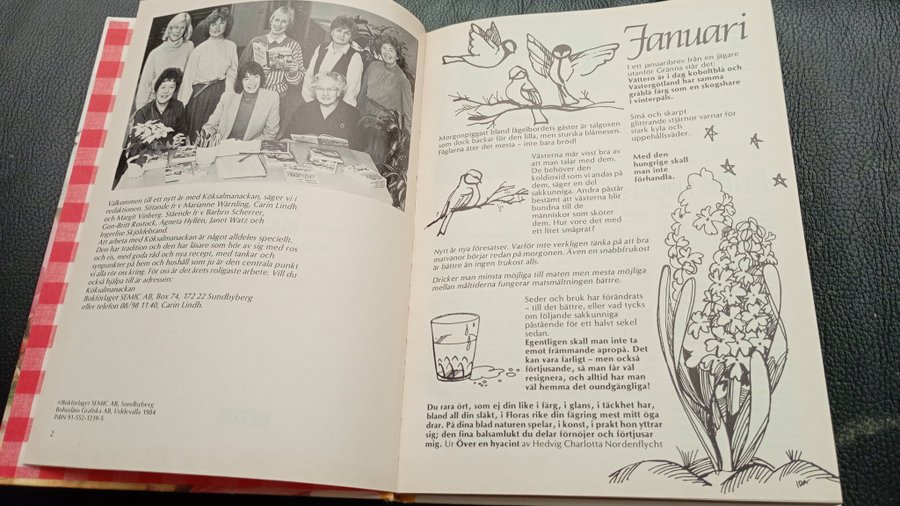 Välkommen till ett nytt år med Köksalmanackan, säger vi i
redaktionen. Sittande fr v Marianne Wärnling, Carin Lindh
och Margit Vinberg. Stående fr v Barbro Scherrer,
Gun-Britt Rostock, Agneta Hyllén, Janet Watz och
Ingerlise Skjöldebrand.
Att arbeta med Köksalmanackan är något alldeles speciellt.
Den har tradition och den har läsare som hör av sig med ros
och ris, med goda råd och nya recept, med tankar och
synpunkter på hem och hushåll som ju är den centrala punkt
vi alla rör oss kring. För oss är det årets roligaste arbete. Vill du
också hjälpa till är adressen:
Köksalmanackan
Bokförlaget SEMIC AB, Box 74, 172 22 Sundbyberg
eller telefon 08/98 11 40, Carin Lindh.
©Bokförlaget SEMIC AB, Sundbyberg
Bohusläns Grafiska AB, Uddevalla 1984
ISBN 91-552-3239-5
2
Januari
I ett januaribrev från en jägare
utanför Gränna står det:
Vättern är i dag koboltblå och
Västergötland har samma
gråblå färg som en skogshare
i vinterpäls.
Små och skarpt
glittrande stjärnor varnar för
stark kyla och
uppehållsväder.
Med den
hungrige skall
man inte
förhandla.
Morgonpiggast bland fågelbordets gäster är talgoxen
som dock backar för den lilla, men sturska blåmesen.
Fåglarna äter det mesta – inte bara bröd!
Växterna mår visst bra av
att man talar med dem.
De behöver den
koldioxid som vi andas på
dem, säger en del
sakkunniga. Andra påstår
bestämt att växterna blir
bundna till de
människor som sköter
dem. Hur vore det med
ett litet småprat?
Nytt år nya föresatser. Varför inte verkligen tänka på att bra
matvanor börjar redan på morgonen. Även en snabbfrukost
är bättre än ingen frukost alls.
Dricker man minsta möjliga till maten men mesta möjliga
mellan måltiderna fungerar matsmältningen bättre.
Seder och bruk har förändrats
– till det bättre, eller vad tycks
om följande sakkunniga
påstående för ett halvt sekel
sedan.
Egentligen skall man inte ta
emot främmande apropå. Det
kan vara farligt – men också
förtjusande, så man får väl
resignera, och alltid har man
väl hemma det oundgängliga!
Du rara ört, som ej din like i färg, i glans, i täckhet har,
bland all din släkt, i Floras rike din fägring mest mitt öga
drar. På dina blad naturen spelar, i konst, i prakt hon yttrar
sig; den fina balsamlukt du delar förnöjer och förtjusar
mig. Ur Över en hyacint av Hedvig Charlotta Nordenflycht
IDA